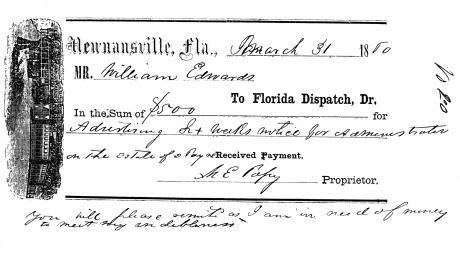 Newnansville, Fla., March 31 1880
MR. William Edwards
To Florida Dispatch, Dr.
In the Sum of $500 for
Advertising weeks notice for Administrator
on the estate of Received Payment.
M E Papy Proprietor.
You will please remit as I am in need of money
to meet my indebtness